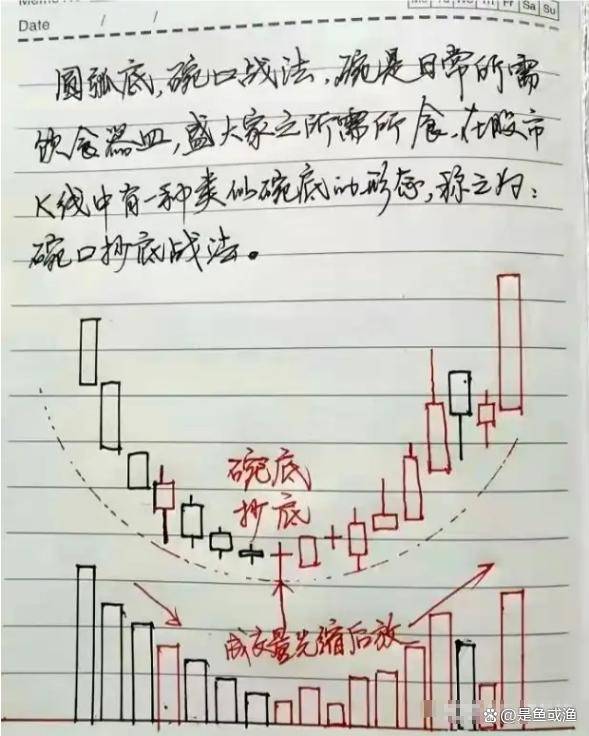 Date / /
Mo Tu We Th Fr Sa Su
圆弧底,碗口战法,碗是日常所需
饮食器皿,盛大家之所需所食,在股市
K线中有一种类似碗底的形态,称之为:
碗口抄底战法。
碗底
抄底
成交量先缩后放
@是鱼或渔